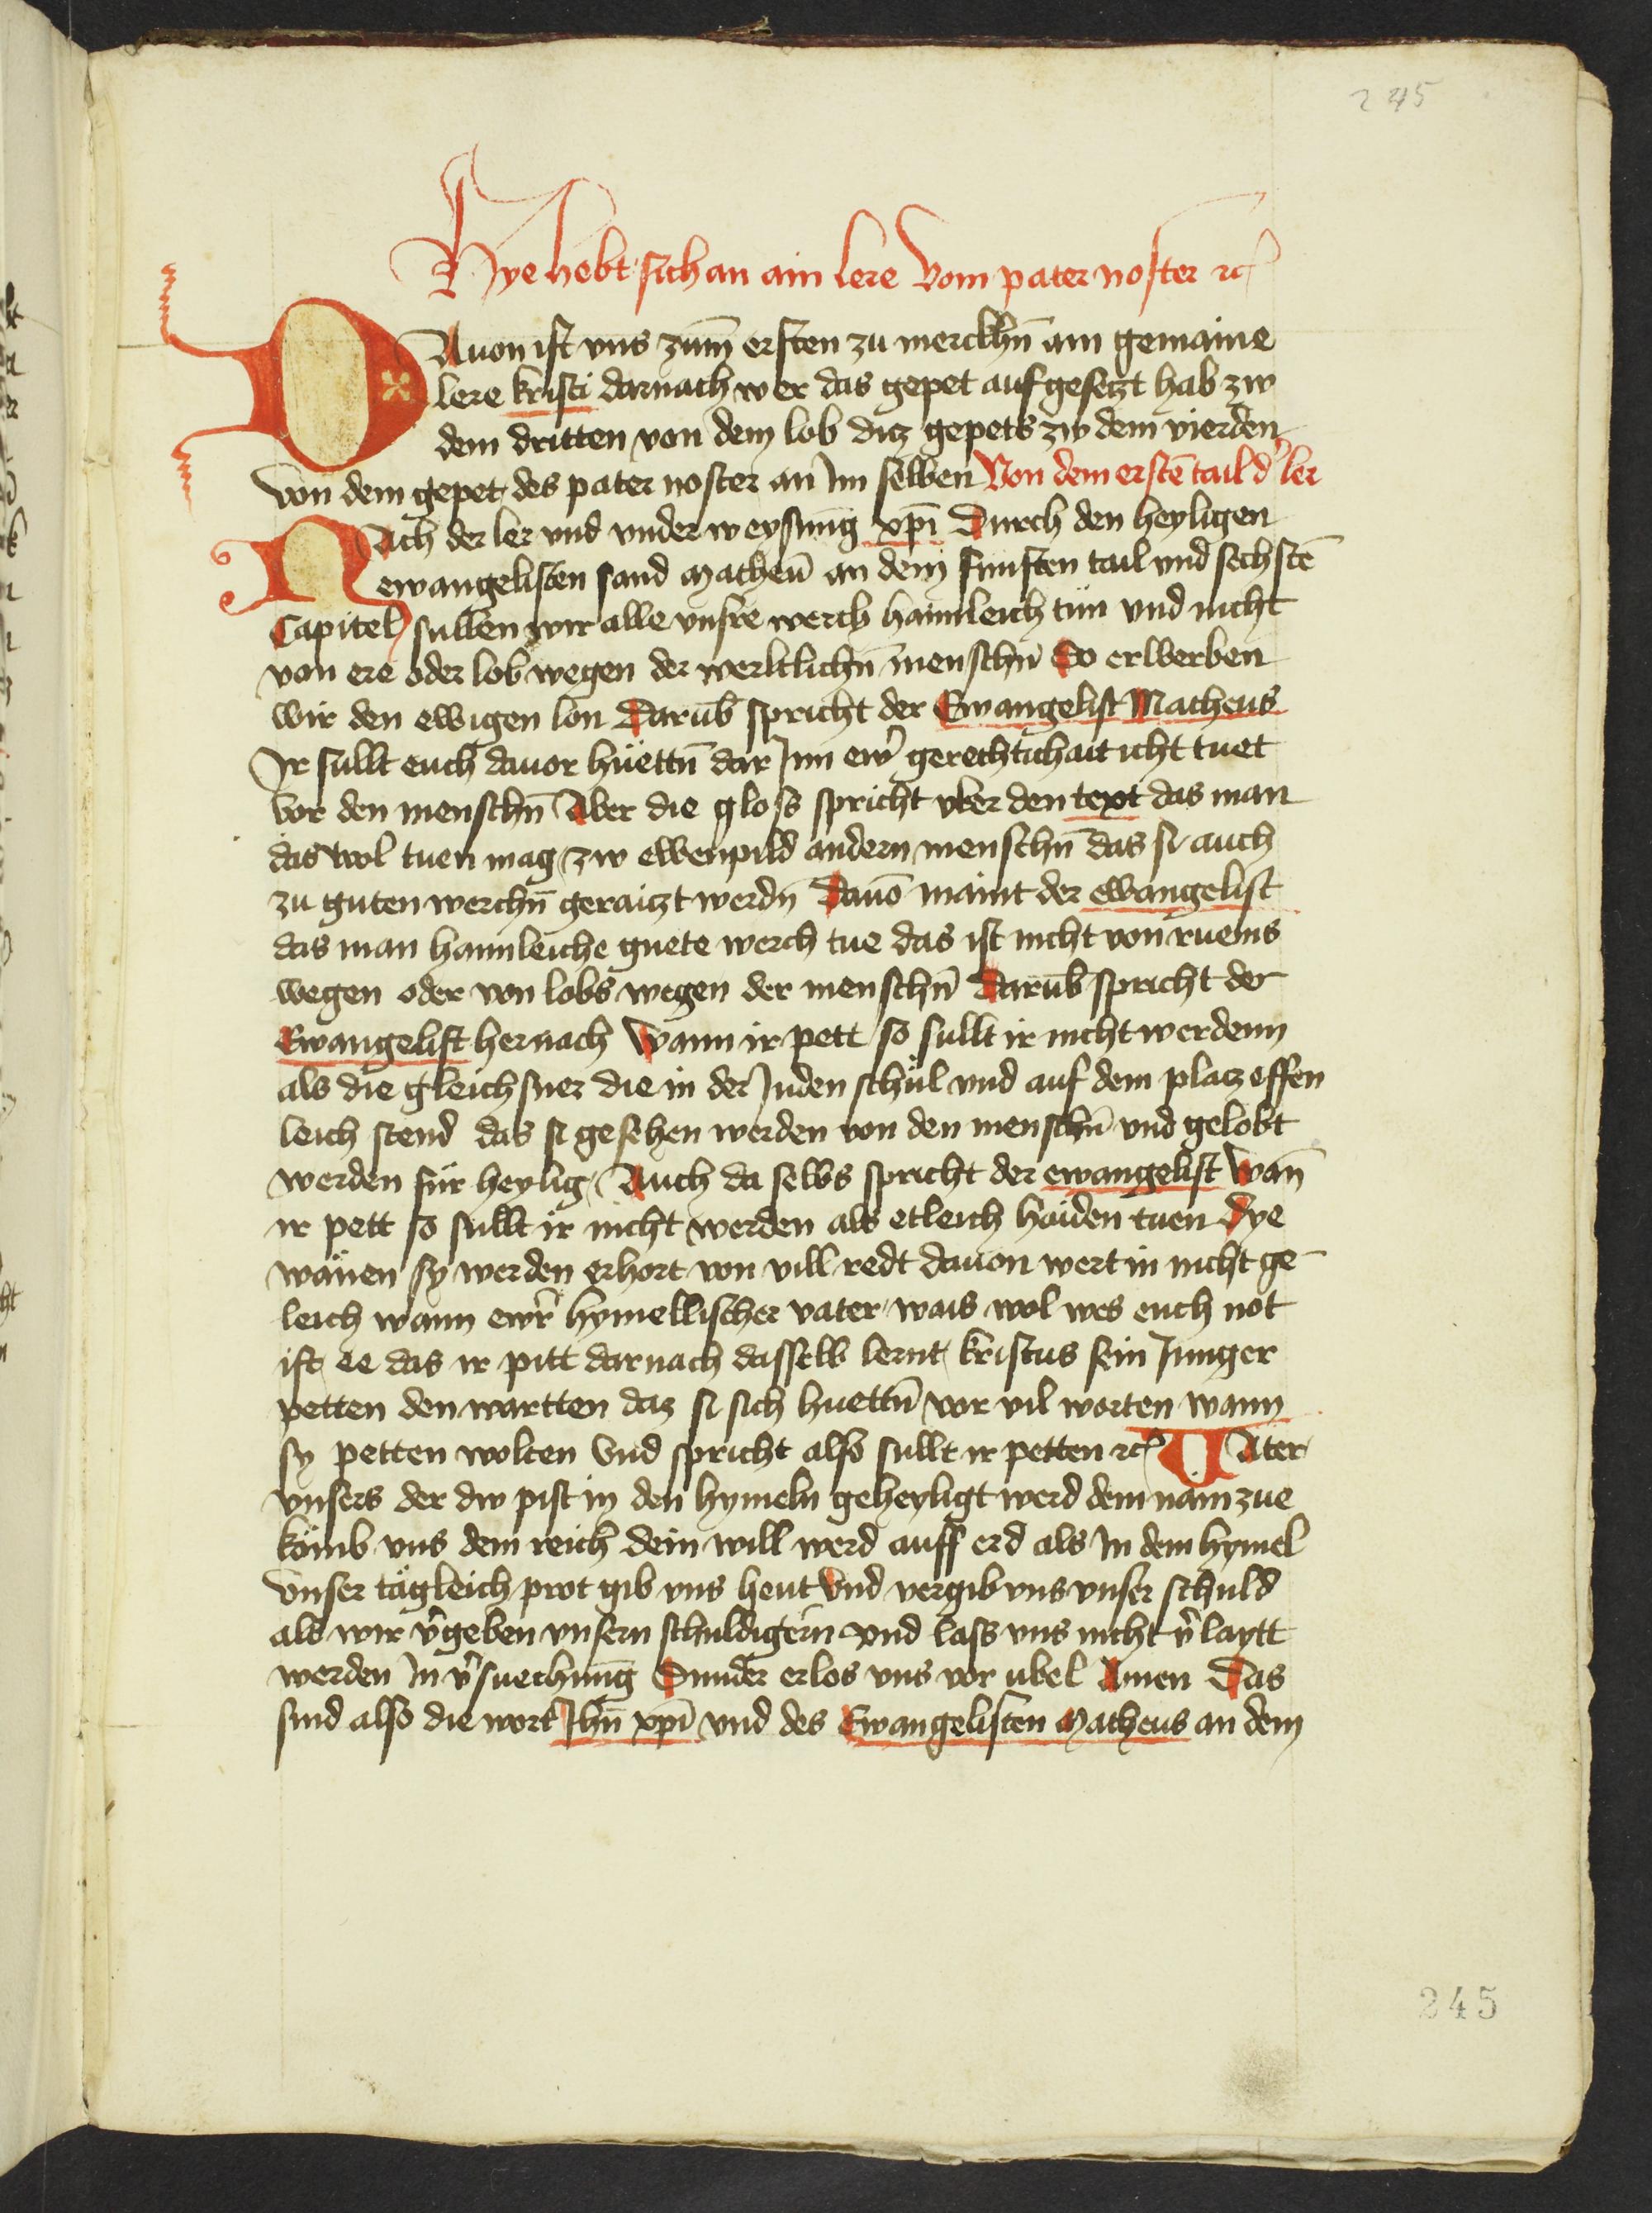 245
Hye hebt sich an ain lere Vom pater noster ꝛc
DAuon ist vns zum̄ ersten zu merckhn̄ ain gemaine
lere kristi darnach wer das gepet auf gesetzt hab zw
dem dritten von dem lob ditz gepets zw dem vierden
von dem gepet des pater noster an Im selben Von dem erstē tail d' ler
NAch der ler vnd vnderweysung xp̄i Durch den heyligen
ewangelisten sand Matheū an dem funften tail vnd sechstē
Capitel sullen wir alle vnsre werch haimleich tün vnd nicht
von ere oder lob wegen der werltlichn̄ menschn̄ So erlberben
wir den ewigen lon Darub̄ spricht der Ewangelist Matheus
Ir sullt euch dauor hüettn̄ dar Inn ewr̄ gerechtichait icht tuet
vor den menschn̄ Aber die gloss spricht vber den text das man
das wol tuen mag zw ebenpild andern menschn̄ das si auch
zu guten werchn̄ geraitzt werdn̄ Dauō maint der ewangelist
das man haimleiche guete werch tue das ist nicht von ruems
wegen oder von lobs wegen der menschn̄ Darub̄ spricht der
Ewangelist hernach Wann ir pett so sullt ir nicht werdenn
als die gleichsner die in der Juden schůl vnd auf dem platz offen
leich stend das si gesehen werden von den menschn̄ vnd gelobt
werden für heylig Auch da selbs spricht der ewangelist Wan̄
ir pett so sullt ir nicht werden als etleich haiden tuen Dye
wänen sy werden erhort von vill redt dauon wert in nicht ge
leich wann ewr̄ hymellischer vater wais wol wes euch not
ist ee das ir pitt darnach dasselb lernt kristus sein Junger
petten den wartten daz si sich huettn̄ vor vil worten wann
sy petten wolten Vnd spricht also sullt ir petten ꝛc VAter
vnsers der dw pist in den hymeln geheyligt werd dein nam zue
kömb vns dein reich dein will werd auff erd als In dem hymel
Vnser tägleich prot gib vns heut Vnd vergib vns vnser schuld
als wir v̄geben vnsern schuldigern Vnd lass vns nicht v̄laytt
werden In v̄suechung Sunder erlos vns vor ubel Amen Das
sind also die wort Jhū xp̄i vnd des Ewangelisten Matheus an dem
245